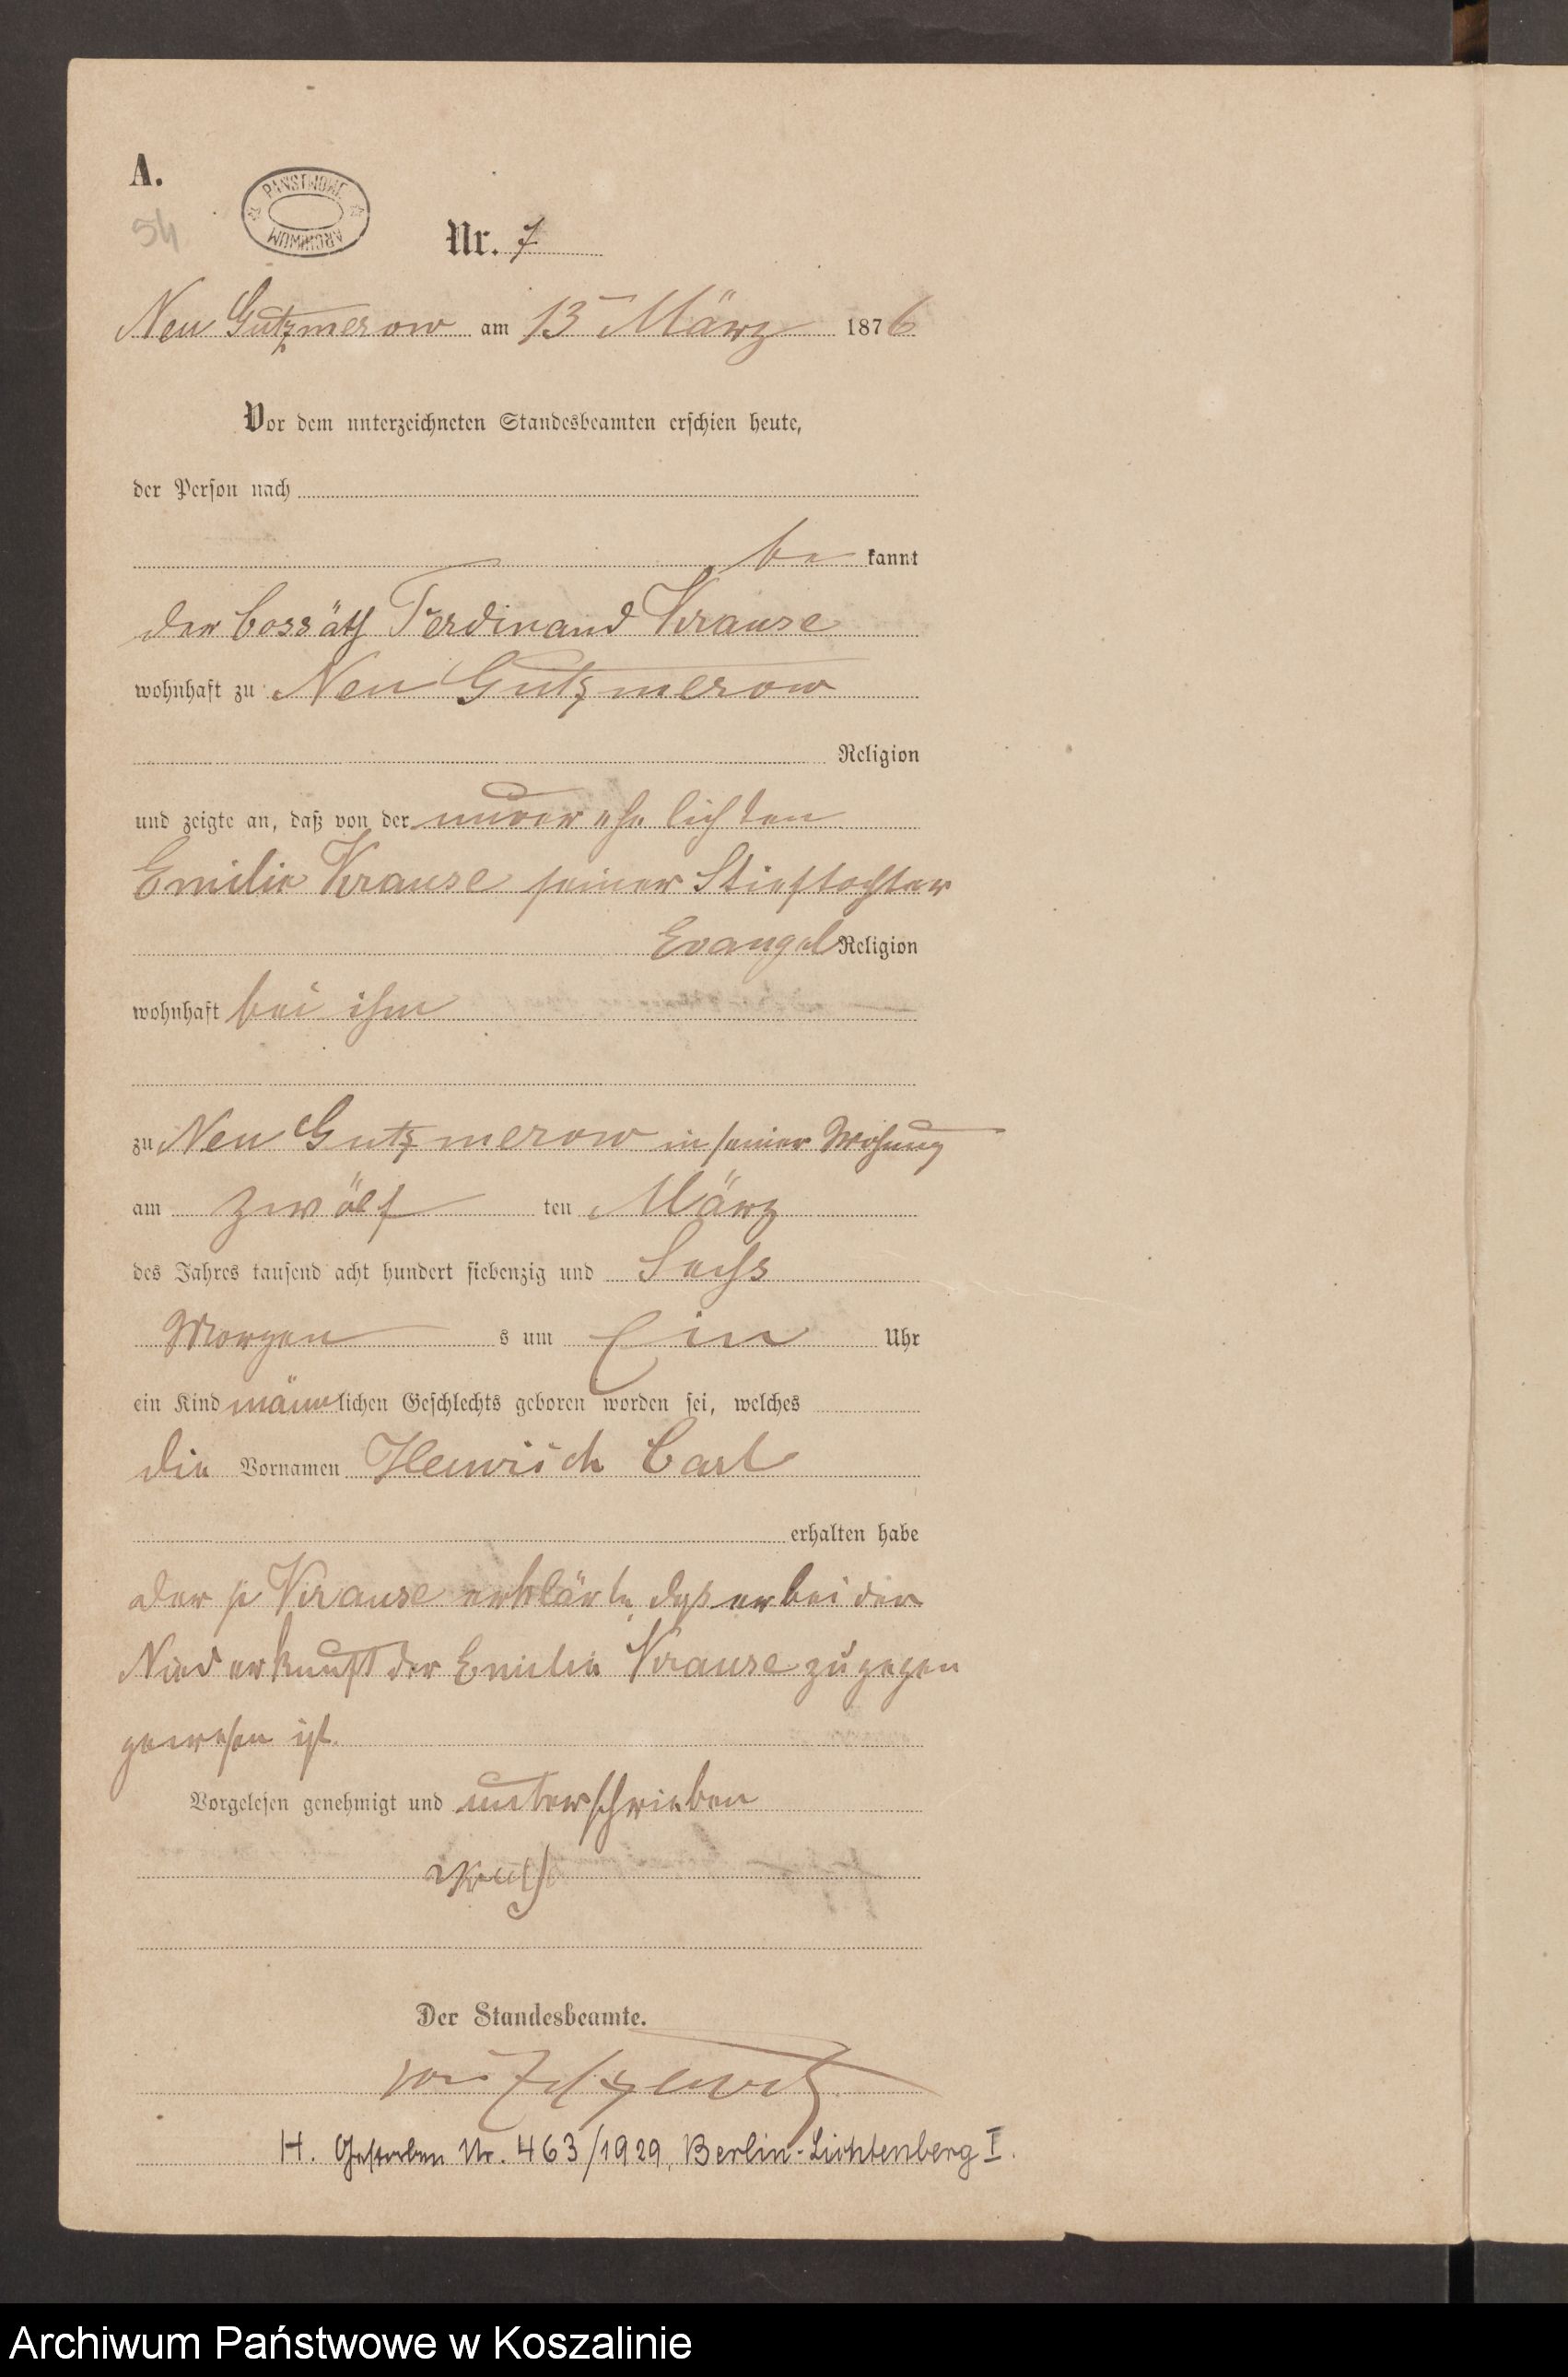 A.
54
PAŃSTWOWE ARCHIWUM
Nr. 7
Neu Gutzmerow am 13 März 1876
Vor dem unterzeichneten Standesbeamten erschien heute,
der Person nach
be kannt
der Cossäth Ferdinand Krause
wohnhaft zu Neu Gutzmerow
Religion
und zeigte an, daß von der unverehelichten
Emilie Krause seiner Stieftochter
Evangel Religion
wohnhaft bei ihm
zu Neu Gutzmerow in seiner Wohnung
am zwölf ten März
des Jahres tausend acht hundert siebenzig und Sechs
Morgen s um Ein Uhr
ein Kind männlichen Geschlechts geboren worden sei, welches
die Vornamen Heinrich Carl
erhalten habe
der p Krause erklärte, daß er bei der
Niederkunft der Emilie Krause zugegen
gewesen ist.
Vorgelesen genehmigt und unterschrieben
Der Standesbeamte.
von
H. Gestorben Nr. 463/1929, Berlin-Lichtenberg I.
Archiwum Państwowe w Koszalinie